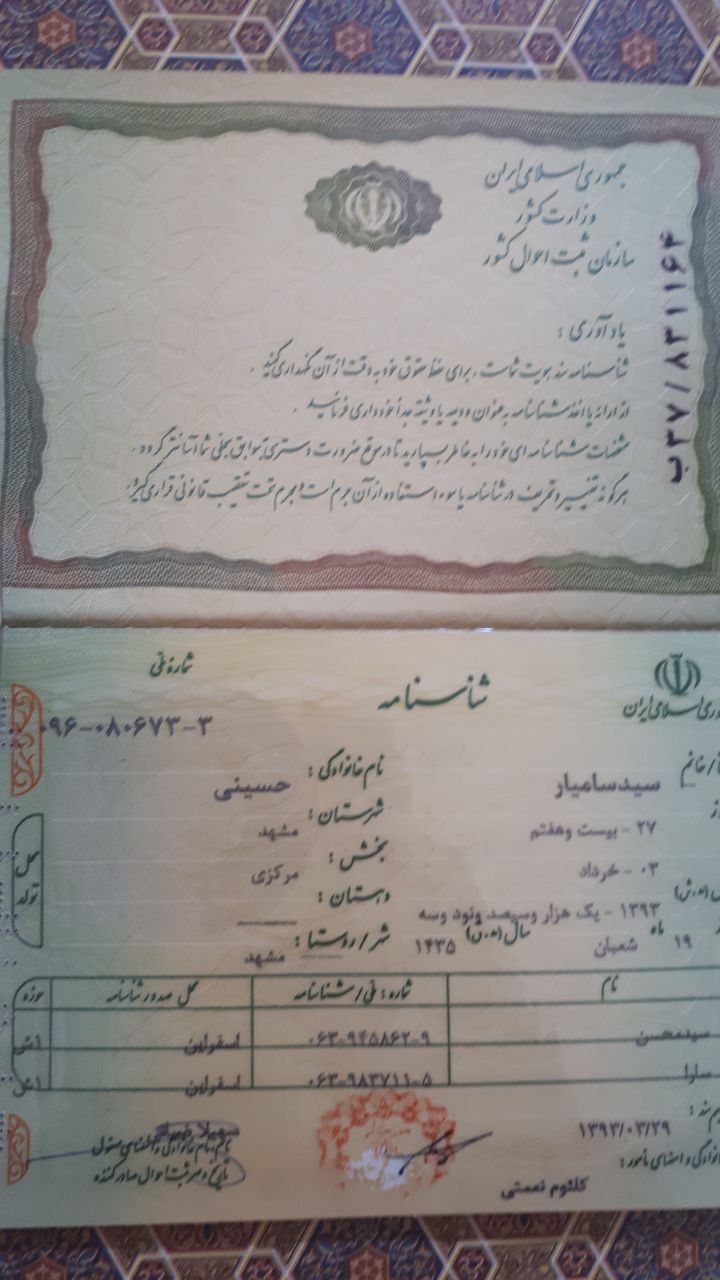 جمهوری اسلامی ایران
وزارت کشور
سازمان ثبت احوال کشور
ب۳۷/۸۳۱۱۶۴
یادآوری :
شناسنامه سند هویت شماست ، برای حفظ حقوق خود به دقت از آن نگهداری کنید .
از ارائه یا اخذ شناسنامه به عنوان ودیعه یا وثیقه جداً خودداری فرمائید .
مشخصات شناسنامه ای خود را به خاطر بسپارید تا در موقع ضرورت دسترسی به سوابق سجلی شما آسانتر گردد .
هرگونه تغییر و تحریف در شناسنامه یا سوء استفاده از آن جرم است و مجرم تحت تعقیب قانونی قرار می گیرد .
شناسنامه
شماره ملی
۰۹۶-۰۸۰۶۷۳-۳
جمهوری اسلامی ایران
سیدسامیار
نام خانوادگی : حسینی
۲۷ - بیست وهفتم
شهرستان : مشهد
۰۳ - خرداد
بخش : مرکزی
۱۳۹۳ - یک هزار وسیصد ونود وسه
دهستان :
۱۹ ماه شعبان سال (ه.ق) ۱۴۳۵
شهر / روستا : مشهد
محل تولد
نام شماره : ملی/شناسنامه محل صدور شناسنامه حوزه
سیدمحسن ۰۶۳-۹۴۵۸۶۲-۹ اسفراین
سارا ۰۶۳-۹۸۳۷۱۱-۵ اسفراین
۱۳۹۳/۰۳/۲۹
خانوادگی و امضای مأمور :
کلثوم نعمتی
نام و نام خانوادگی و امضای مسئول
تاریخ و مهر ثبت احوال صادر کننده